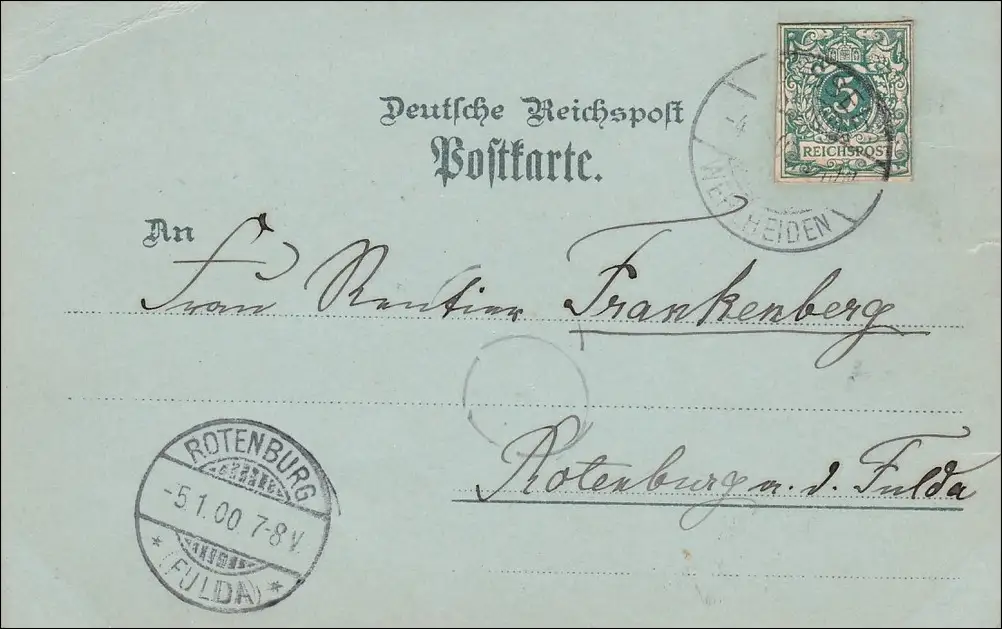 Deutsche Reichspost
Postkarte.
5
REICHSPOST
-4
WEHLHEIDEN
An
Frau Rentier Frankenberg
Rotenburg a. d. Fulda
ROTENBURG
-5.1.00 7-8V.
* (FULDA) *